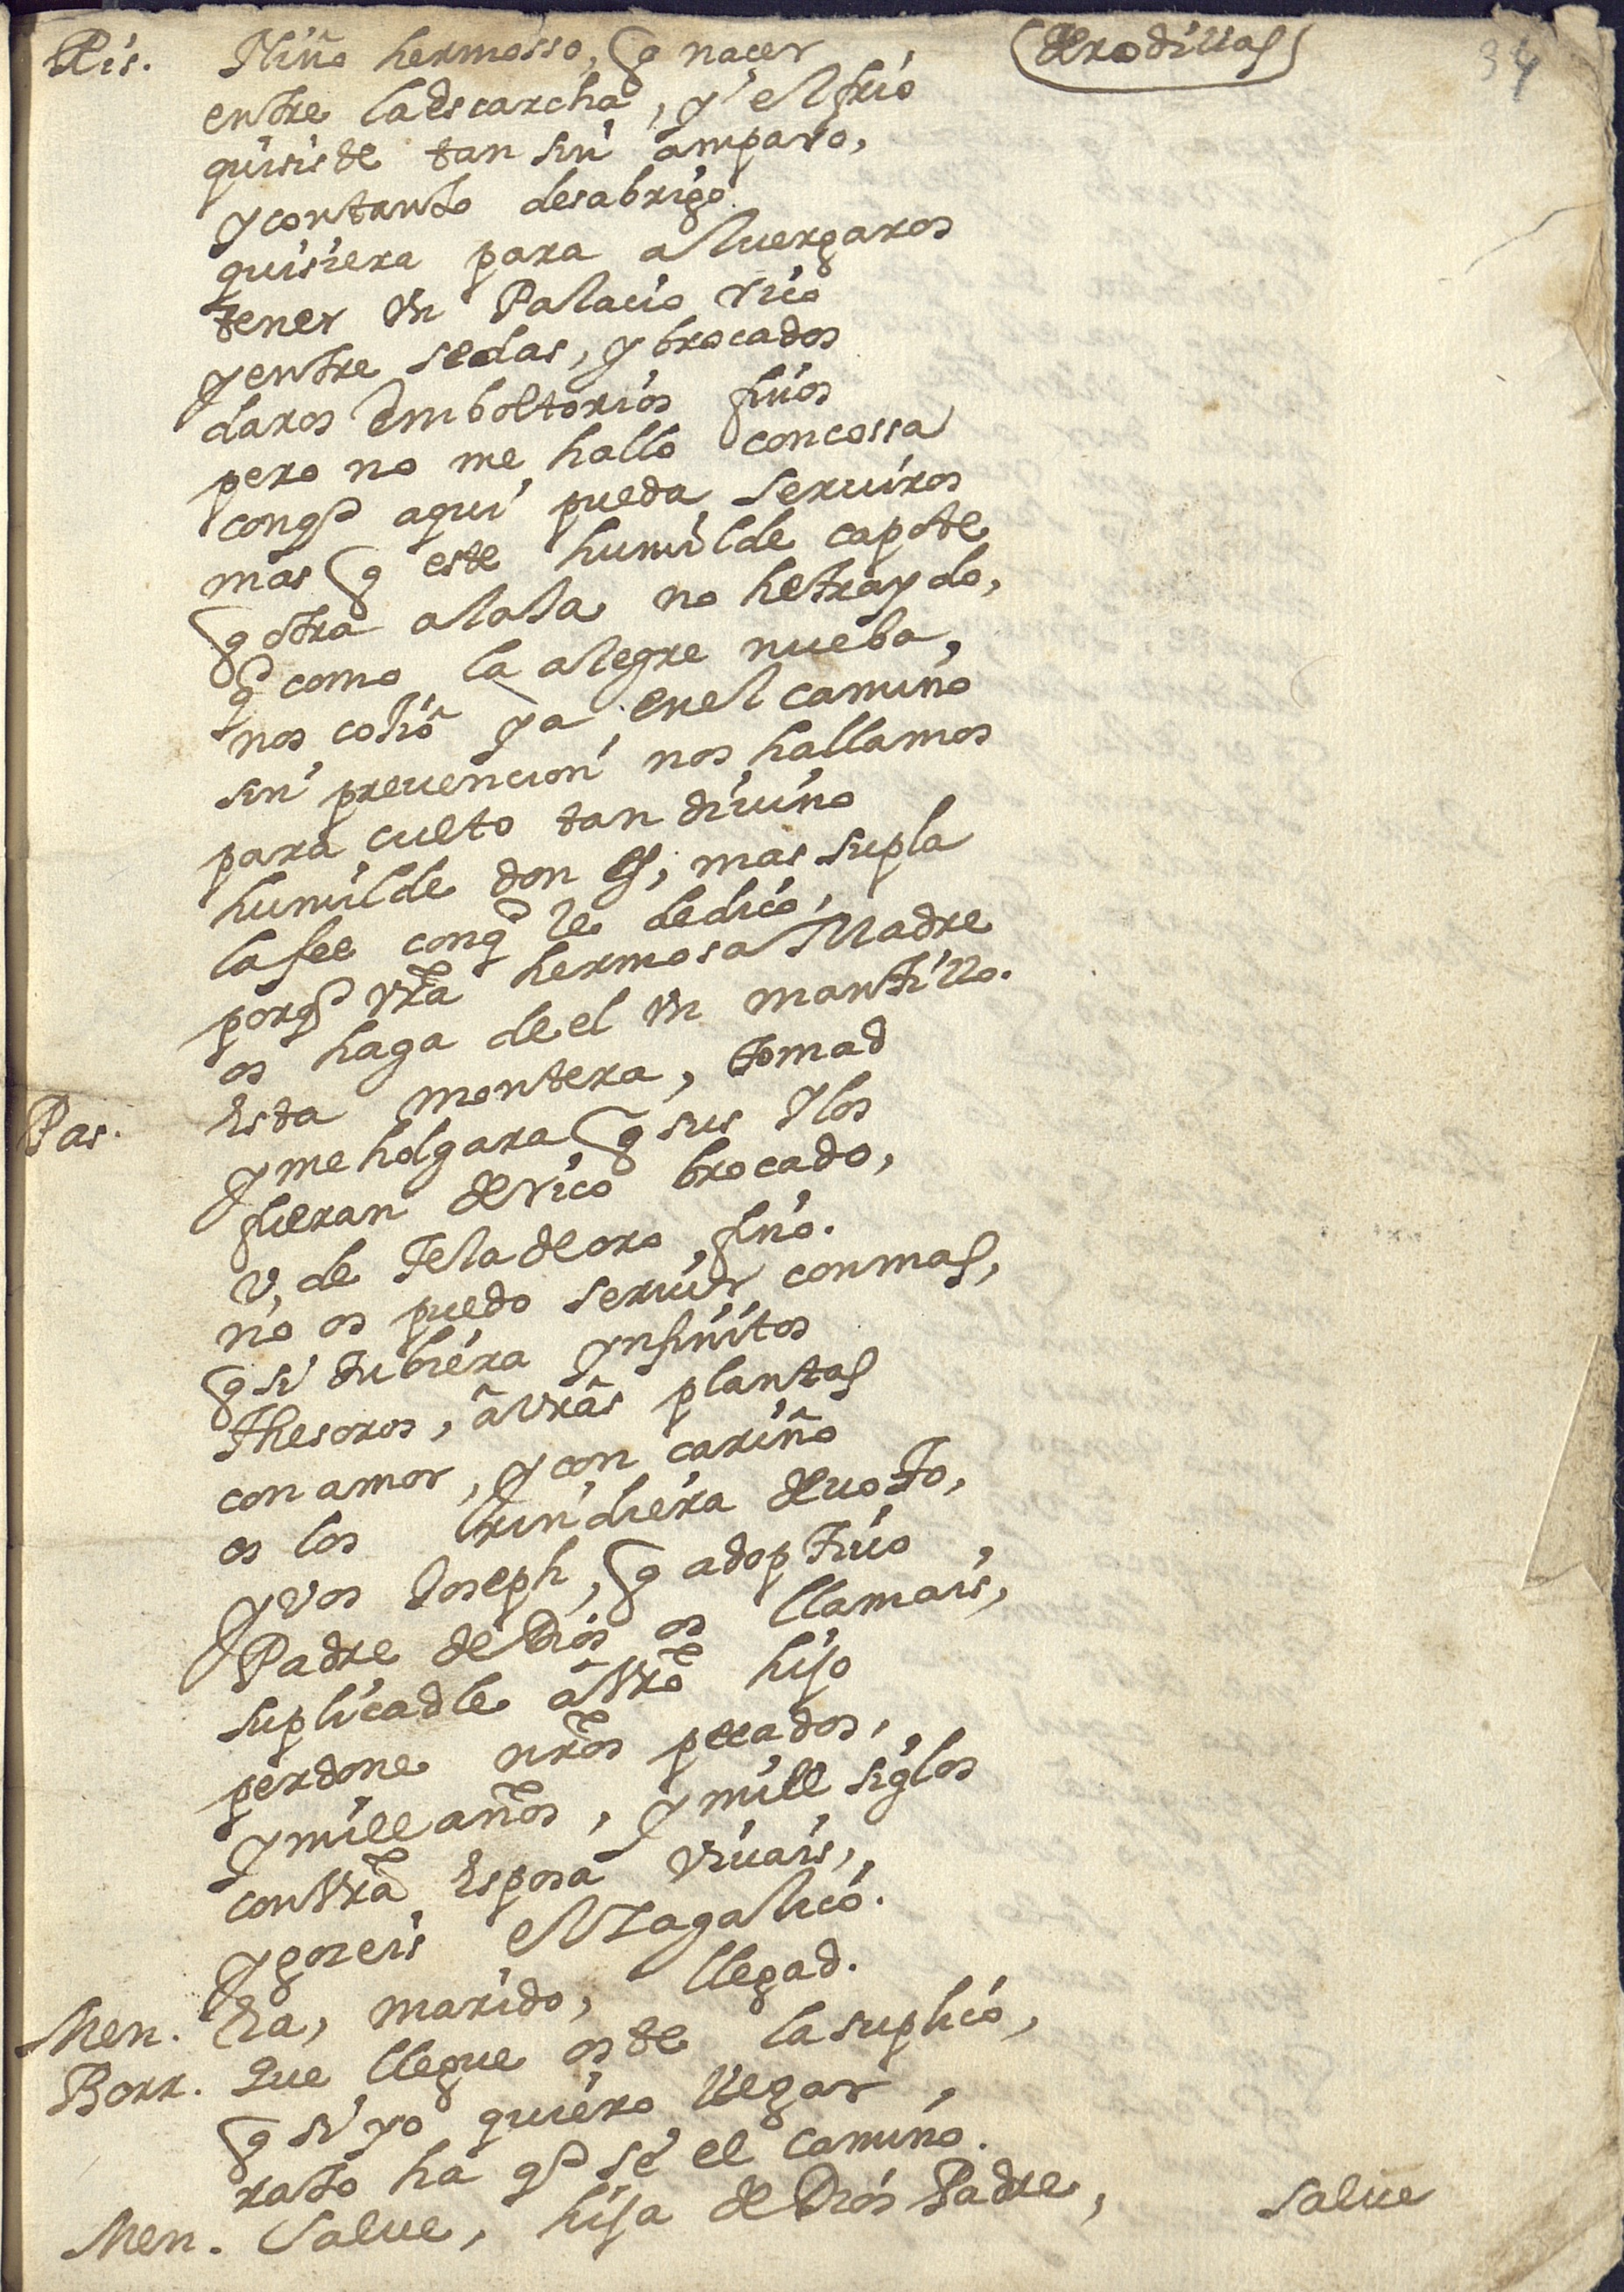 34
(de rodillas)
Ris. Niño hermosso, q nacer
entre la escarcha, y el frio
quisiste tan sin amparo,
y con tanto desabrigo
quisiera para alvergaros
tener vn Palacio rico
y entre sedas, y brocados
daros emboltorios finos
pero no me hallo con cossa
con q aqui pueda serviros
mas q este humilde capote
q otra alaja no he traydo,
q como la alegre nueba,
nos cojiô ya en el camino
sin prevencion nos hallamos
para culto tan divino
humilde don es, mas supla
la fee con q le dedico,
porq vrã hermosa Madre
os haga de el vn mantillo.
Pas. Esta montera, tomad
y me holgara q sus ylos
fueran de rico brocado,
v, de tela de oro fino.
no os puedo servir con mas,
q si tubiera ynfinitos
Thesoros, â vrãs plantas
con amor, y con cariño
os los rindiera devoto,
y vos Joseph, q adoptivo,
Padre de Dios os llamais,
suplicadle â vrõ hijo
perdone nrõs pecados,
y mill años, y mill siglos
con vrã Esposa vivais,
y goceis el Zagalico.
Men. Ea, marido, llegad.
Borr. Que llegue oste la suplico,
q si yo quiero llegar,
rato ha q sé el camino.
Men. Salve, hija de Dios Padre,
Salve